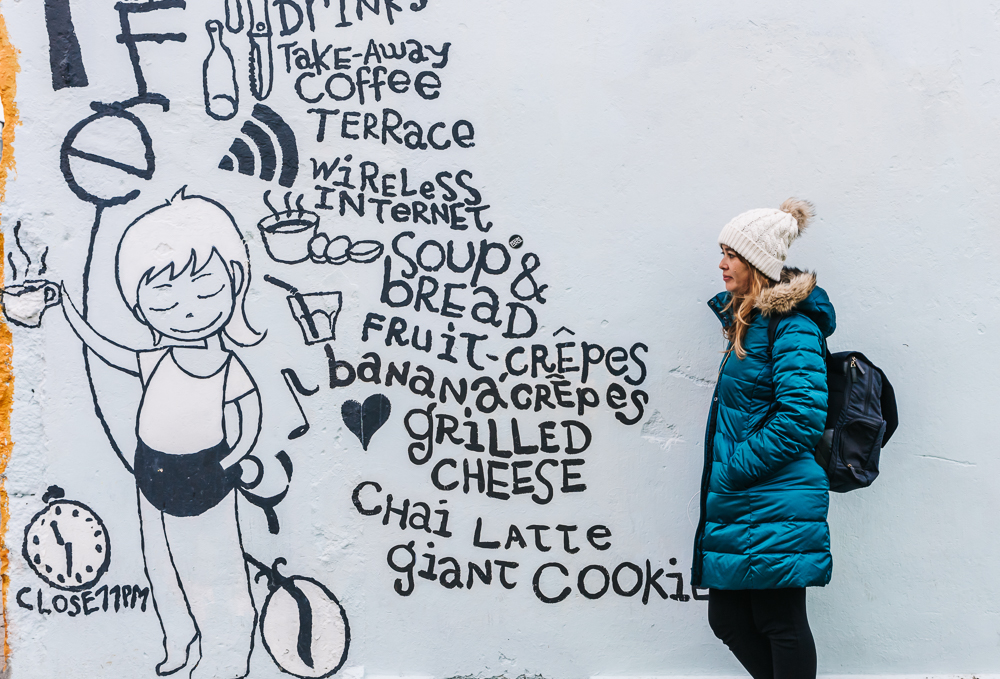 DRINKS
TAKE-AWAY
COFFEE
TERRACE
WIRELESS
INTERNET
SOUP &
BREAD
FRUIT-CRÊPES
BANANA CRÊPES
GRILLED
CHEESE
CHAI LATTE
GIANT COOKIE
CLOSE 11PM